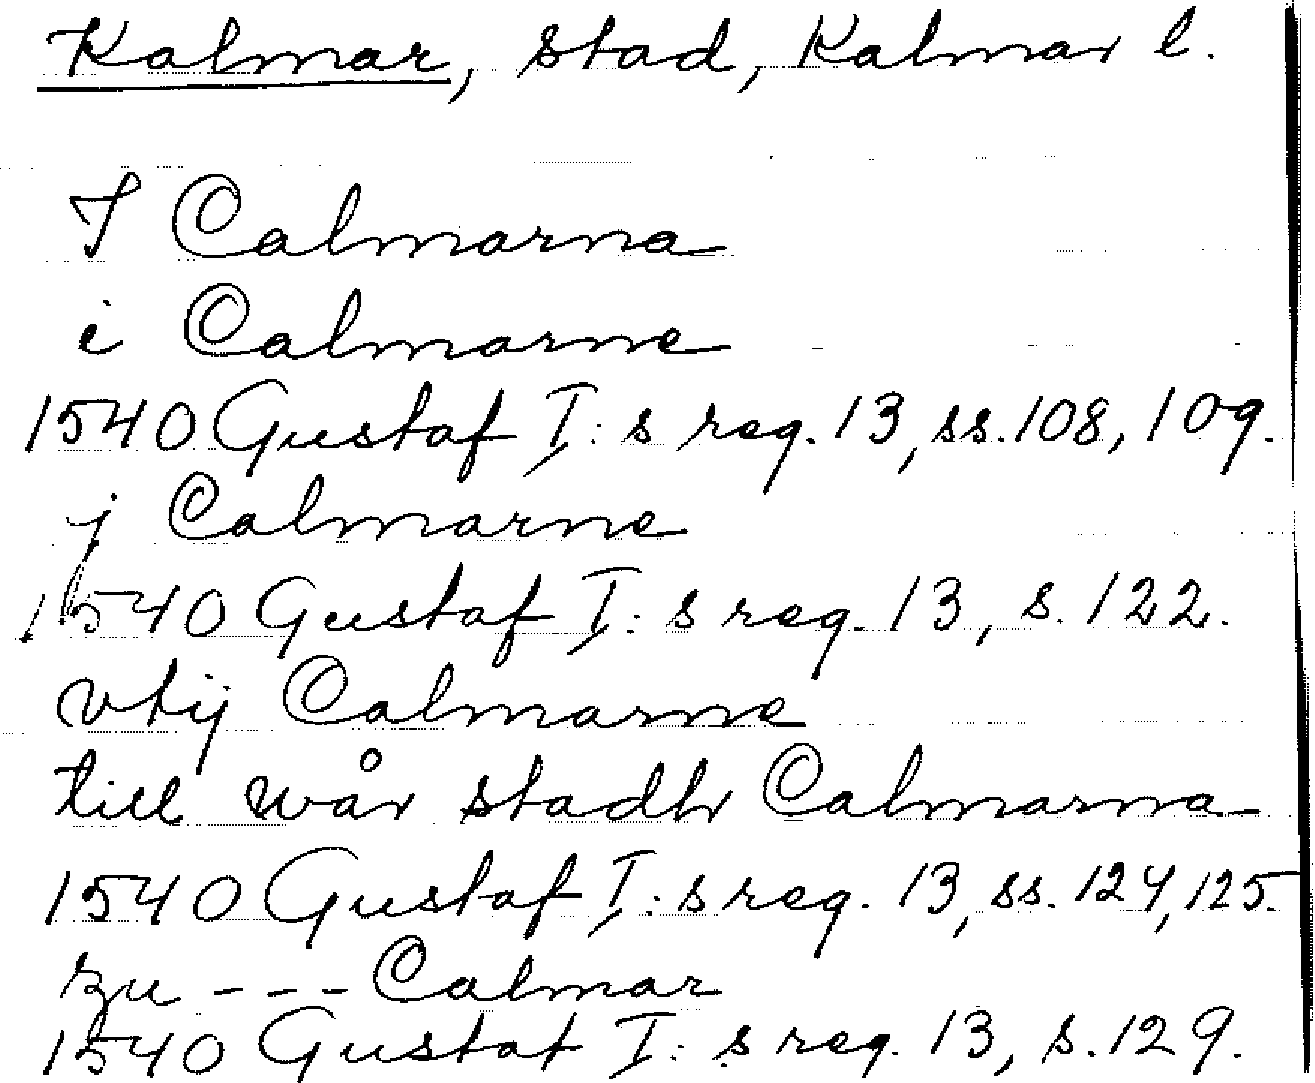 Kalmar, stad, Kalmar l.
I Calmarna
i Calmarne
1540 Gustaf I:s reg. 13, ss. 108, 109.
j Calmarne
1540 Gustaf I:s reg. 13, s. 122.
vtij Calmarne
till wår stadh Calmarna
1540 Gustaf I:s reg. 13, ss. 124, 125.
zu --- Calmar
1540 Gustaf I:s reg. 13, s. 129.